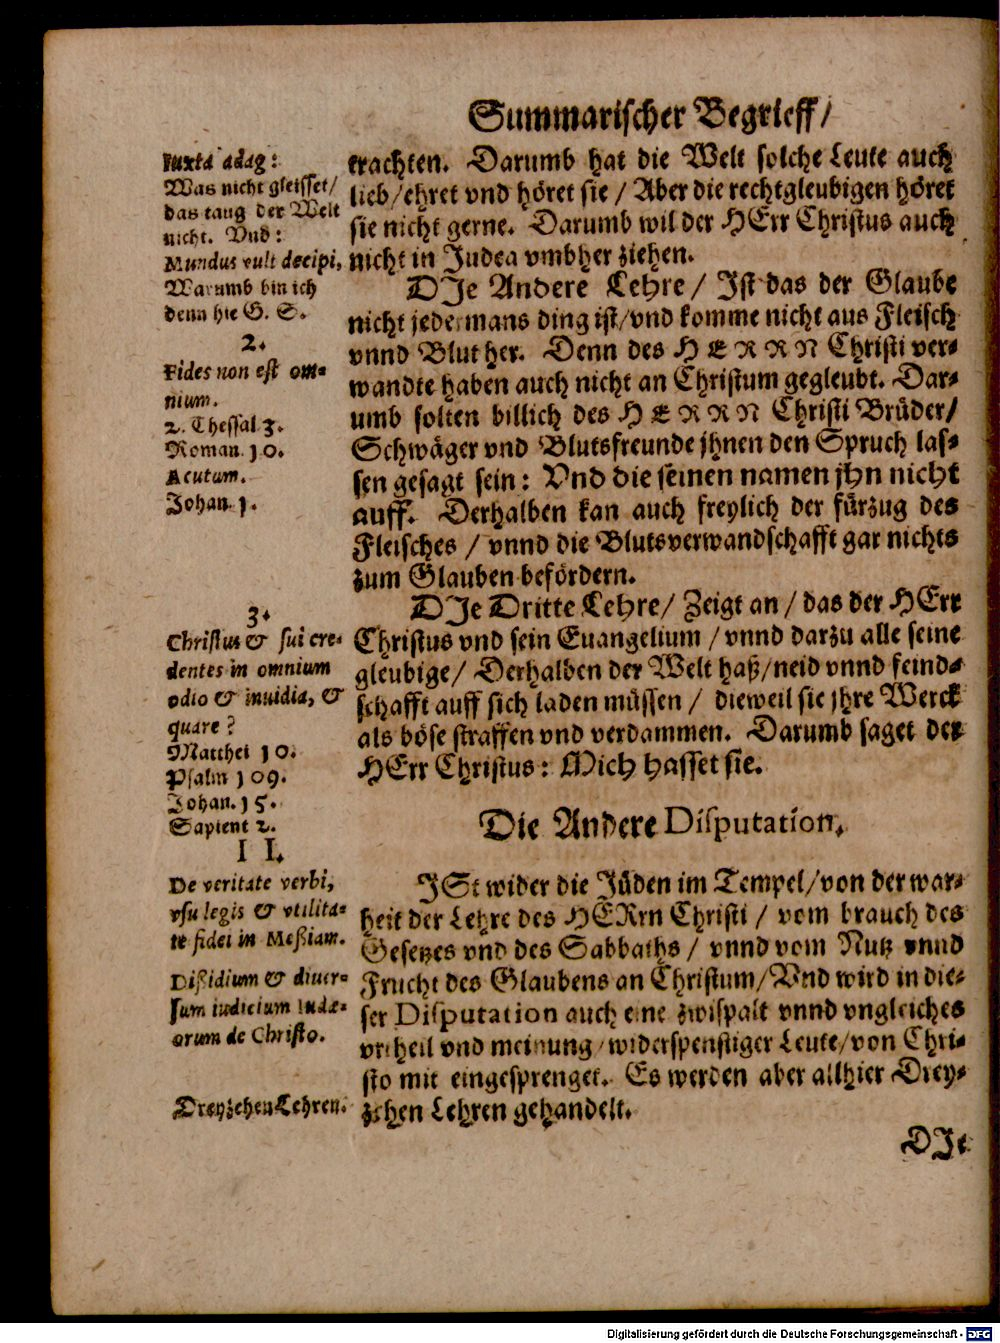 Summarischer Begrieff/
Iuxta adag:
Was nicht gleisset/
das taug der Welt
nicht. Vnd:
Mundus vult decipi,
Warumb bin ich
denn hie G. S.
2.
Fides non est om-
nium.
2. Thessal 3.
Roman. 10.
Acutum.
Johan. 1.
3.
Christus & sui cre-
dentes in omnium
odio & inuidia, &
quare?
Matthei 10.
Psalm 109.
Johan. 15.
Sapient 2.
II.
De veritate verbi,
vsu legis & vtilita-
te fidei in Meßiam.
Dißidium & diuer-
sum iudicium Iudæ-
orum de Christo.
Dreyzehen Lehren.
trachten. Darumb hat die Welt solche Leute auch
lieb/ehret vnd höret sie / Aber die rechtgleubigen höret
sie nicht gerne. Darumb wil der HErr Christus auch
nicht in Judea vmbher ziehen.
DJe Andere Lehre / Jst das der Glaube
nicht jedermans ding ist/vnd komme nicht aus Fleisch
vnnd Blut her. Denn des HERRN Christi ver-
wandte haben auch nicht an Christum gegleubt. Dar-
umb solten billich des HERRN Christi Brüder/
Schwäger vnd Blutsfreunde jhnen den Spruch las-
sen gesagt sein: Vnd die seinen namen jhn nicht
auff. Derhalben kan auch freylich der fürzug des
Fleisches / vnnd die Blutsverwandschafft gar nichts
zum Glauben befördern.
DJe Dritte Lehre/ Zeigt an / das der HErr
Christus vnd sein Euangelium / vnnd darzu alle seine
gleubige/ Derhalben der Welt haß/neid vnnd feind-
schafft auff sich laden müssen / dieweil sie jhre Werck
als böse straffen vnd verdammen. Darumb saget der
HErr Christus: Mich hasset sie.
Die Andere Disputation.
JSt wider die Jüden im Tempel/von der war-
heit der Lehre des HERrn Christi / vom brauch des
Gesetzes vnd des Sabbaths / vnnd vom Nutz vnnd
Frucht des Glaubens an Christum/Vnd wird in die-
ser Disputation auch eine zwispalt vnnd vngleiches
vrtheil vnd meinung/widerspenstiger Leute/von Chri-
sto mit eingesprenget. Es werden aber allhier Drey-
zehen Lehren gehandelt.
DJe
Digitalisierung gefördert durch die Deutsche Forschungsgemeinschaft - DFG